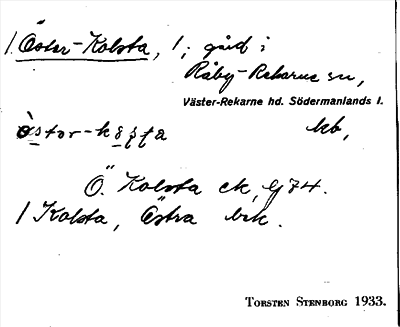 1. Öster-Kolsta, 1, gård i
Råby-Rekarne sn,
Väster-Rekarne hd. Södermanlands l.
kb,
Ö. Kolsta ek, G 74.
1 Kolsta, Östra brk.
TORSTEN STENBORG 1933.